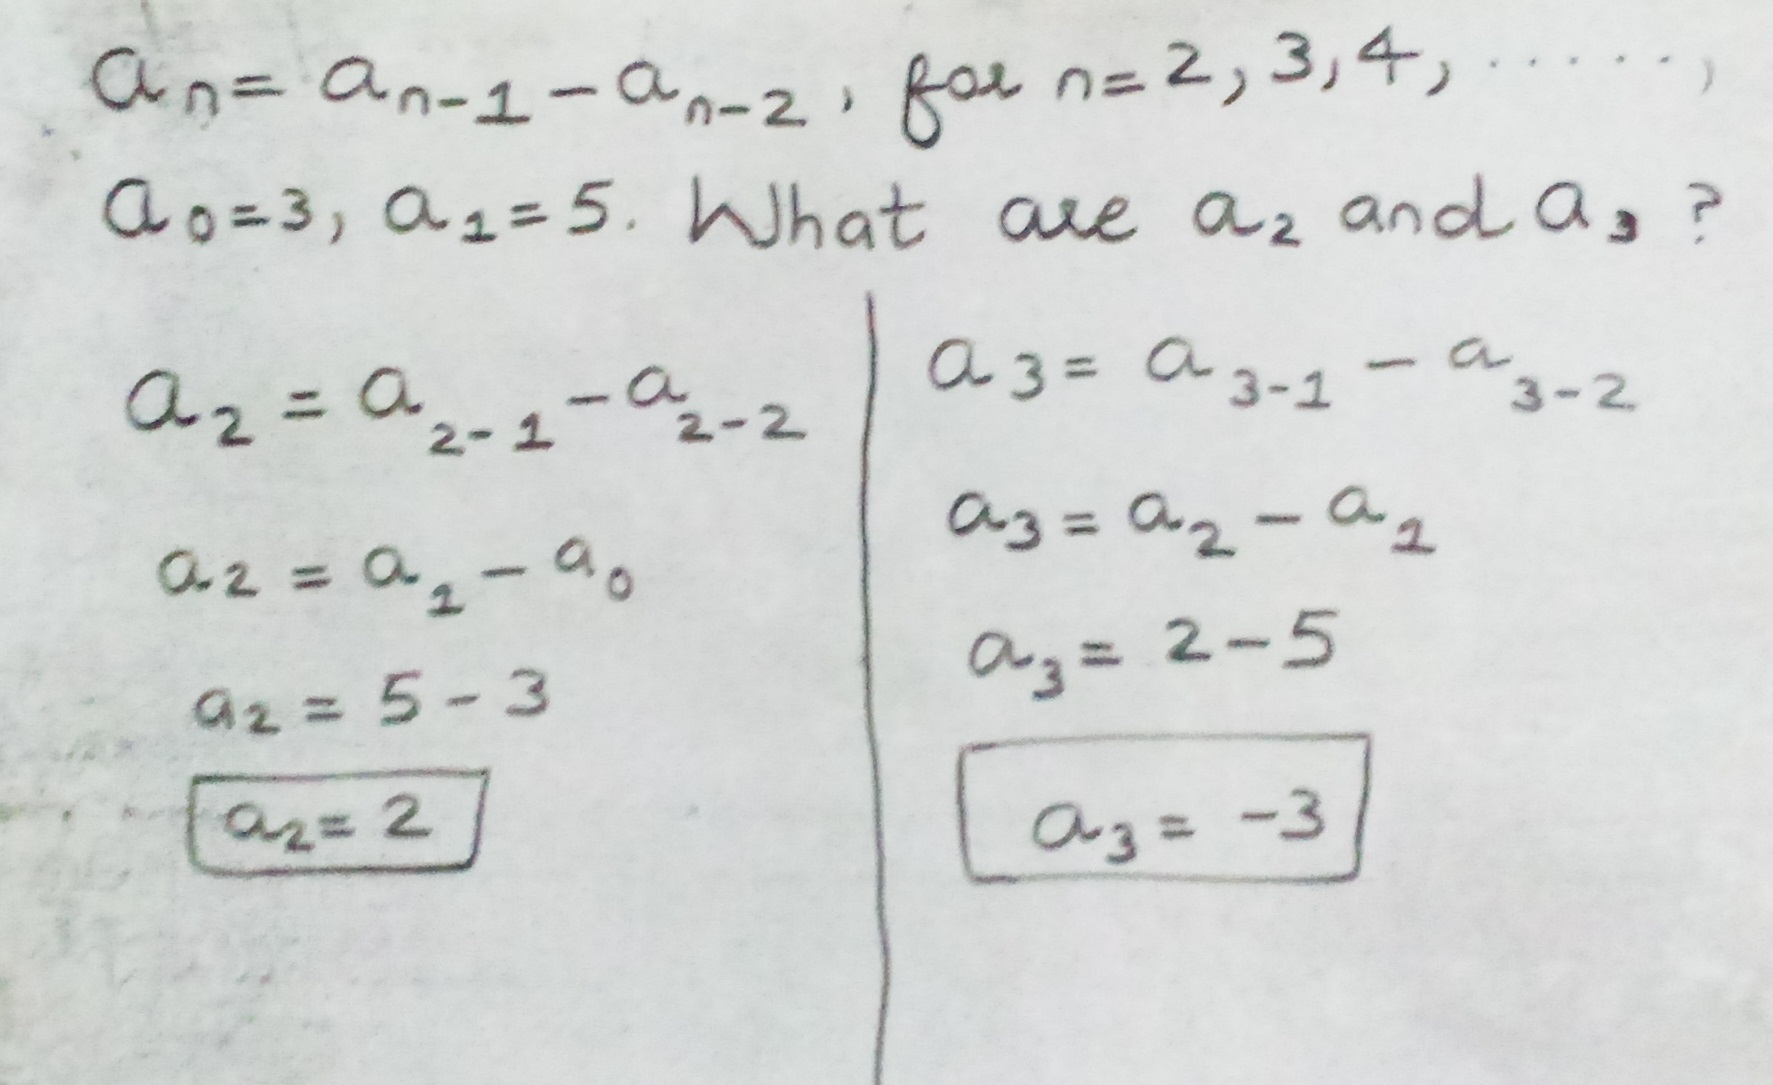 aₙ = aₙ₋₁ - aₙ₋₂, for n = 2, 3, 4, ....., 
a₀ = 3, a₁ = 5. What are a₂ and a₃ ?
a₂ = a₂₋₁ - a₂₋₂
a₂ = a₁ - a₀
a₂ = 5 - 3
a₂ = 2
a₃ = a₃₋₁ - a₃₋₂
a₃ = a₂ - a₁
a₃ = 2 - 5
a₃ = -3